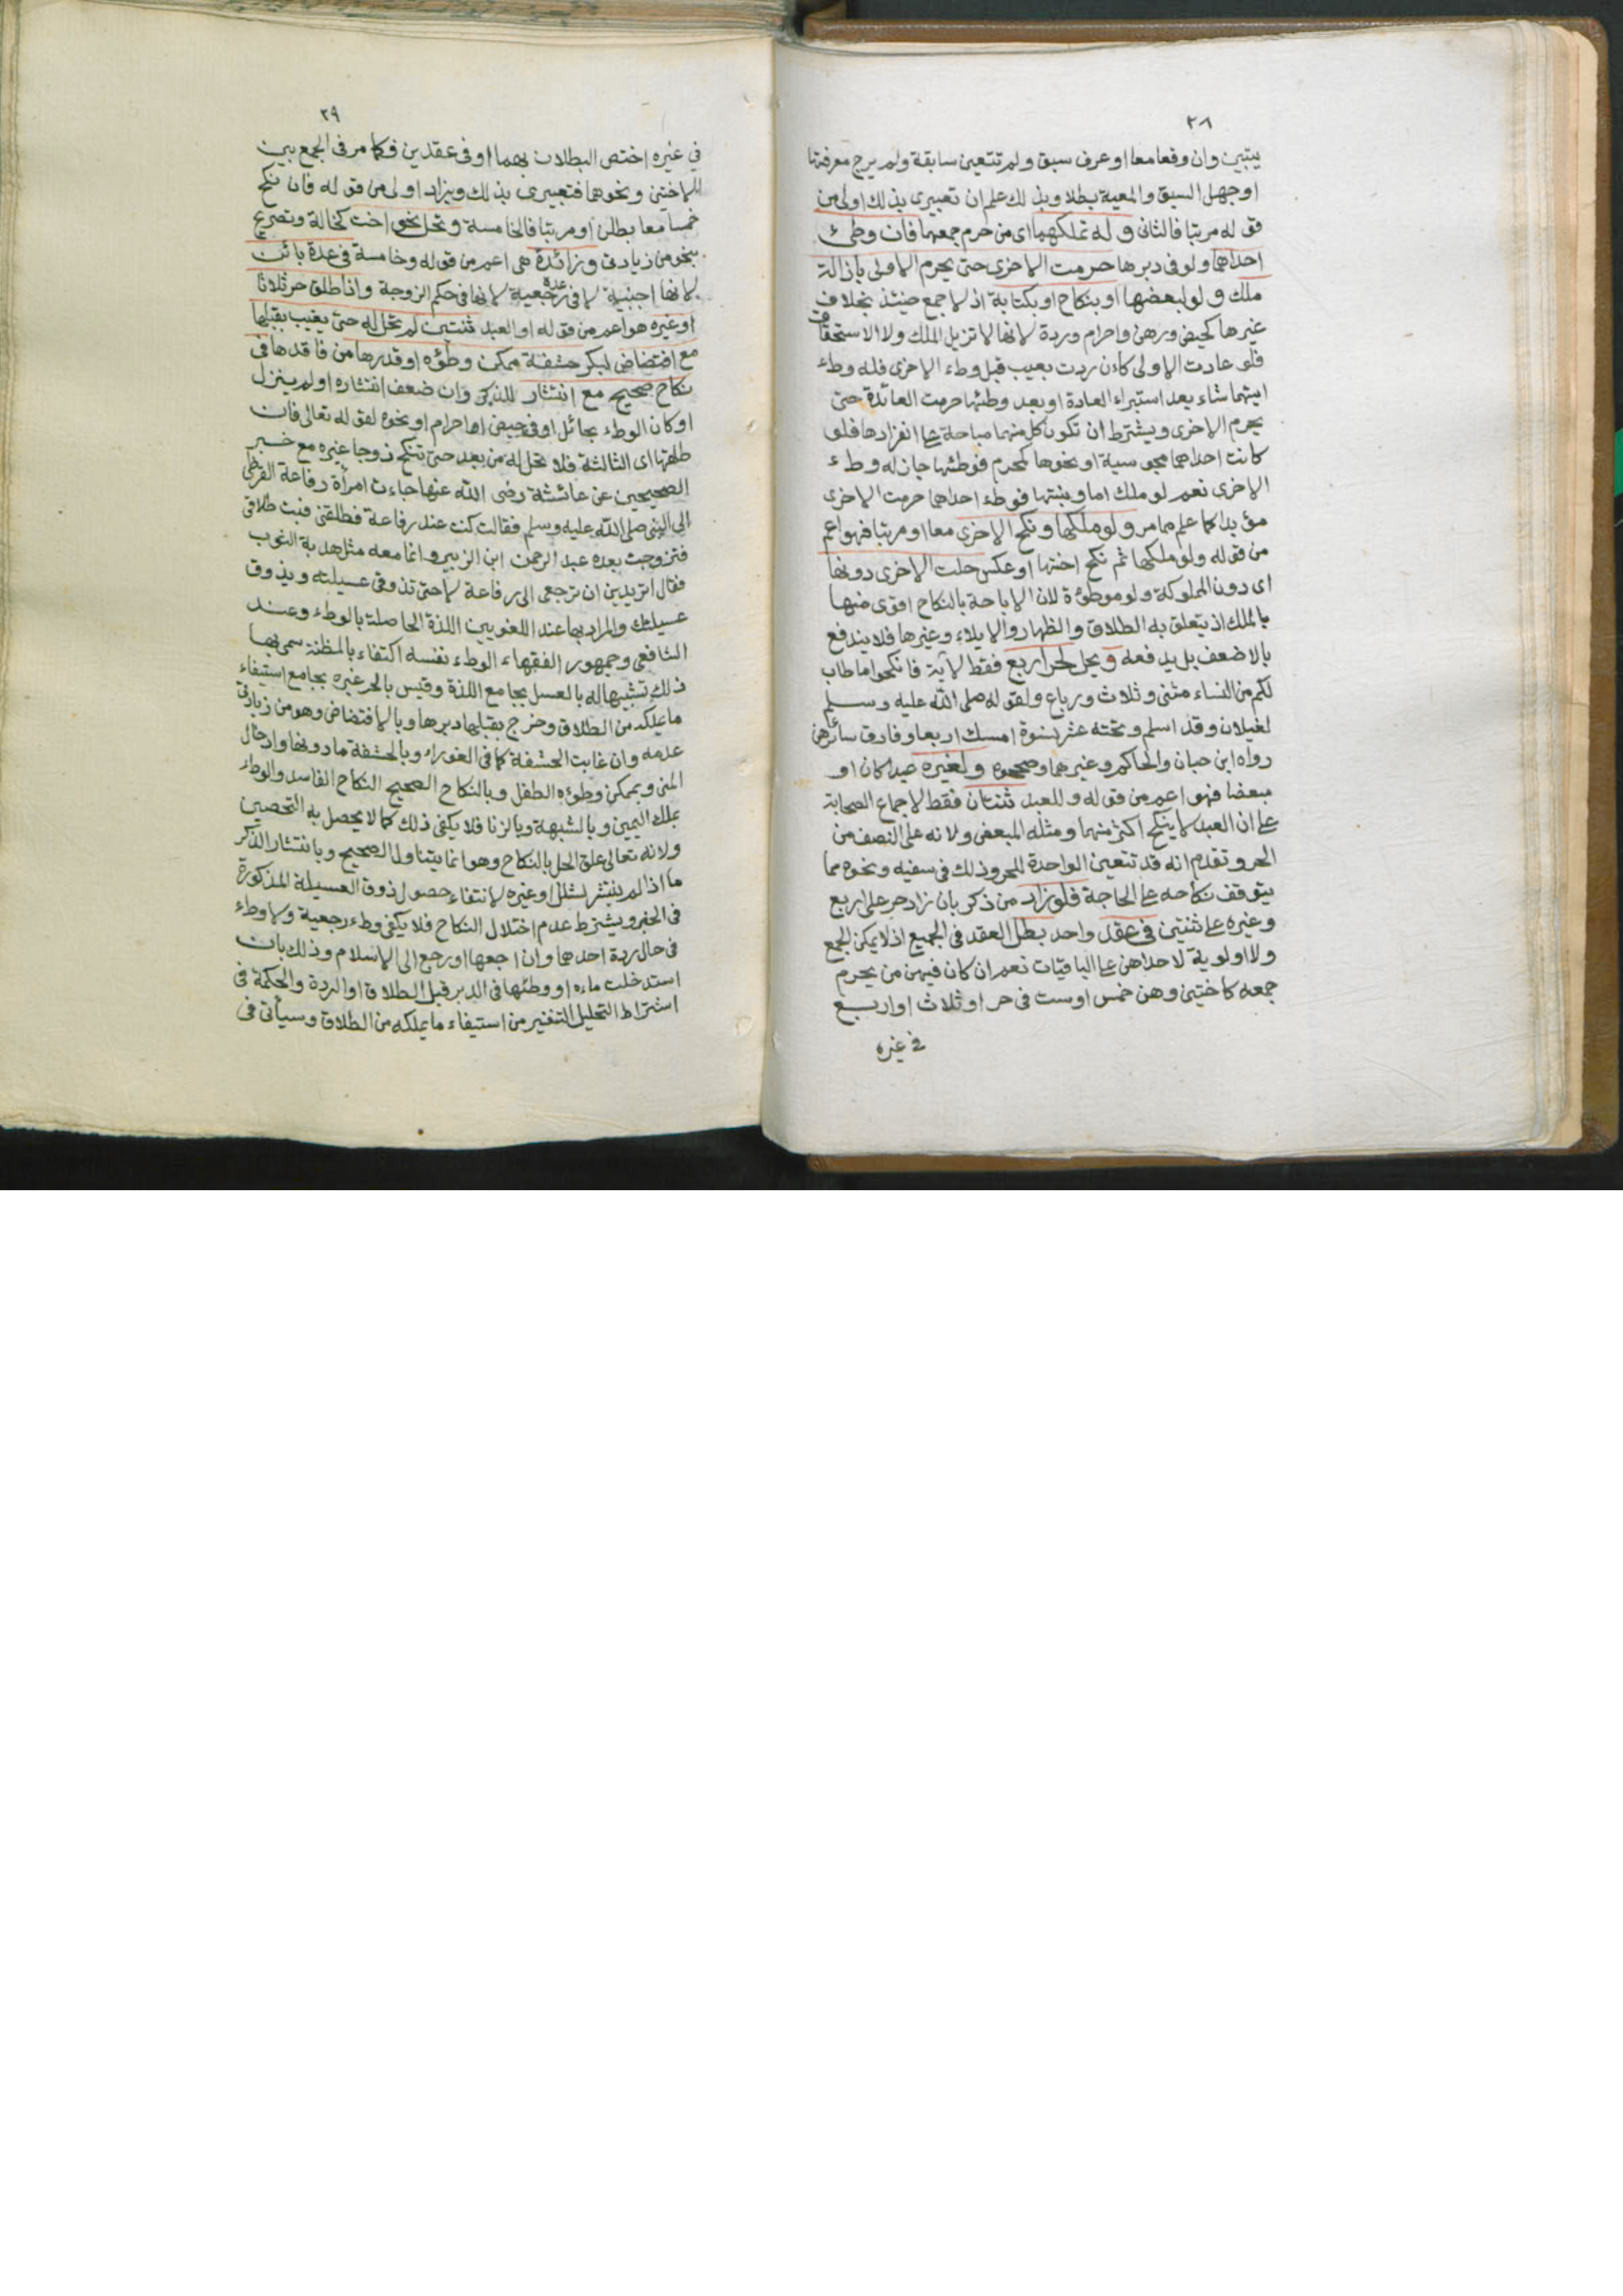 ٢٨
يتبين وان وقعا معا او عرف سبق ولم تتعين سابقة ولم يرج معرفتها
او جهل السبق والمعية بطلا وبذلك علم ان تعبيرى بذلك اولى من
قوله مرتبا فالثانى وله تملكهما اى من حرم جمعهما فان وطئ
احداهما ولو فى دبرها حرمت الاخرى حتى يحرم الاولى بازالة
ملك ولو لبعضها او بنكاح او بكتابة اذ لا جمع حينئذ بخلاف
غيرها كحيض ورهن واحرام وردة لانها لا تزيل الملك ولا الاستحقاق
فلو عادت الاولى كان ردت بعيب قبل وطء الاخرى فله وطء
ايتهما شاء بعد استبراء العادة او بعد وطئها حرمت العائدة حتى
يحرم الاخرى ويشترط ان تكون كل منهما مباحة على انفرادها فلو
كانت احداهما مجوسية او نحوها كمحرم فوطئها جاز له وطء
الاخرى نعم لو ملك اما وبنتها فوطء احداهما حرمت الاخرى
مؤبدا كما علم مما مر ولو ملكها ونكح الاخرى معا او مرتبا فهو اعم
من قوله ولو ملكها ثم نكح اختها او عكس حلت الاخرى دونها
اى دون المملوكة ولو موطؤة لان الاباحة بالنكاح اقوى منها
بالملك اذ يتعلق به الطلاق والظهار والايلاء وغيرها فلا يندفع
بالاضعف بل يدفعه ويحل لحر اربع فقط لاية فانكحوا ما طاب
لكم من النساء مثنى وثلاث ورباع ولقوله صلى الله عليه وسلم
لغيلان وقد اسلم وتحته عشر نسوة امسك اربعا وفارق سائرهن
رواه ابن حبان والحاكم وغيرهما وصححوه ولغيره عبدا كان او
مبعضا فهو اعم من قوله وللعبد ثنتان فقط لاجماع الصحابة
على ان العبد لا ينكح اكثر منهما ومثله المبعض ولانه على النصف من
الحر وتقدم انه قد تتعين الواحدة للحر وذلك فى سفيه ونحوه مما
يتوقف نكاحه على الحاجة فلو زاد من ذكر بان زاد حر على اربع
وغيره على ثنتين فى عقد واحد بطل العقد فى الجميع اذ لا يمكن الجمع
ولا اولوية لاحداهن على الباقيات نعم ان كان فيهن من يحرم
جمعه كاختين وهن خمس او ست فى حر او ثلاث او اربع
فى غيره
٢٩
في غيره اختص البطلان بهما او فى عقدين فكما مر فى الجمع بين
الاختين ونحوهما فتعبيرى بذلك وبزاد اولى من قوله فان نكح
خمسا معا بطلن او مرتبا فالخامسة وتحل نحو اخت كخالة وتصريح
بنحو من زيادتى وزائدة هى اعم من قوله وخامسة فى عدة بائن
لانها اجنبية لا فى عدة رجعية لانها فى حكم الزوجة واذا طلق حر ثلاثا
او غيره هو اعم من قوله او العبد ثنتين لم تحل له حتى يغيب بقبلها
مع افتضاض لبكر حشفة ممكن وطؤه او قدرها من فاقدها فى
نكاح صحيح مع انتشار للذكر وان ضعف انتشاره او لم ينزل
او كان الوطء بحائل او فى حيض او احرام او نحوه لقوله تعالى فان
طلقها اى الثالثة فلا تحل له من بعد حتى تنكح زوجا غيره مع خبر
الصحيحين عن عائشة رضى الله عنها جاءت امرأة رفاعة القرظى
الى النبى صلى الله عليه وسلم فقالت كنت عند رفاعة فطلقنى فبت طلاقى
فتزوجت بعده عبد الرحمن ابن الزبير وانما معه مثل هدبة الثوب
فقال اتريدين ان ترجعى الى رفاعة لا حتى تذوقى عسيلته ويذوق
عسيلتك والمراد بها عند اللغويين اللذة الحاصلة بالوطء وعند
الشافعى وجمهور الفقهاء الوطء نفسه اكتفاء بالمظنة سمى بها
ذلك تشبيها له بالعسل بجامع اللذة وقيس بالحر غيره بجامع استيفاء
ما يملكه من الطلاق وخرج بقبلها دبرها وبالافتضاض وهو من زيادتى
عدمه وان غابت الحشفة كما فى الغوراء وبالحشفة ما دونها وادخال
المنى وبممكن وطؤه الطفل وبالنكاح الصحيح النكاح الفاسد والوطء
بملك اليمين وبالشبهة وبالزنا فلا يكفى ذلك كما لا يحصل به التحصين
ولانه تعالى علق الحل بالنكاح وهو انما يتناول الصحيح وبانتشار الذكر
ما اذا لم ينتشر لشلل او غيره لانتفاء حصول ذوق العسيلة المذكورة
فى الخبر ويشترط عدم اختلال النكاح فلا يكفى وطء رجعية ولا وطء
فى حال ردة احدهما وان راجعها او رجع الى الاسلام وذلك بان
استدخلت ماءه او وطئها فى الدبر قبل الطلاق او الردة والحكمة فى
اشتراط التحليل التنفير من استيفاء ما يملكه من الطلاق وسيأتى فى